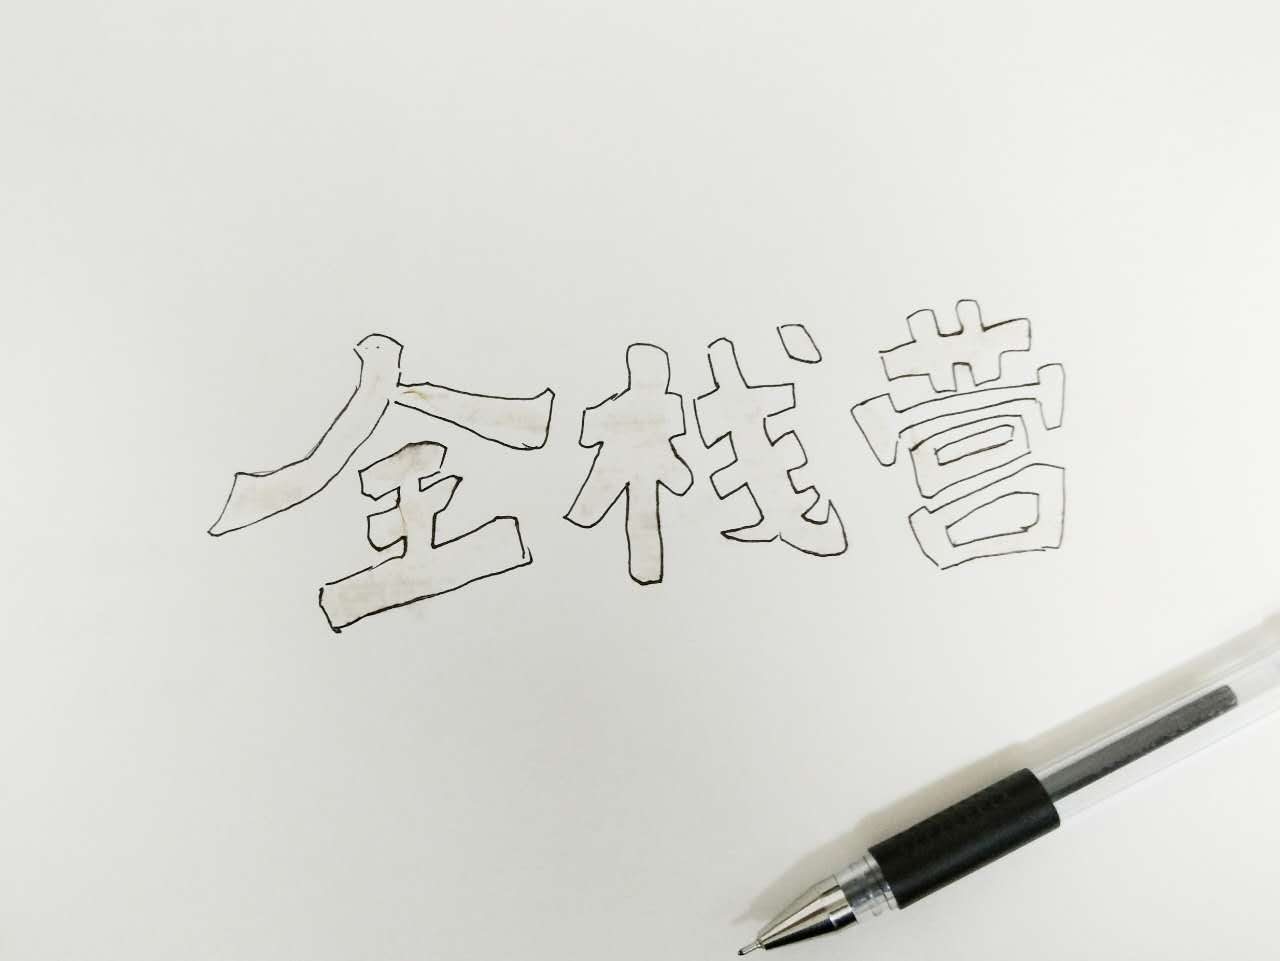 全栈营